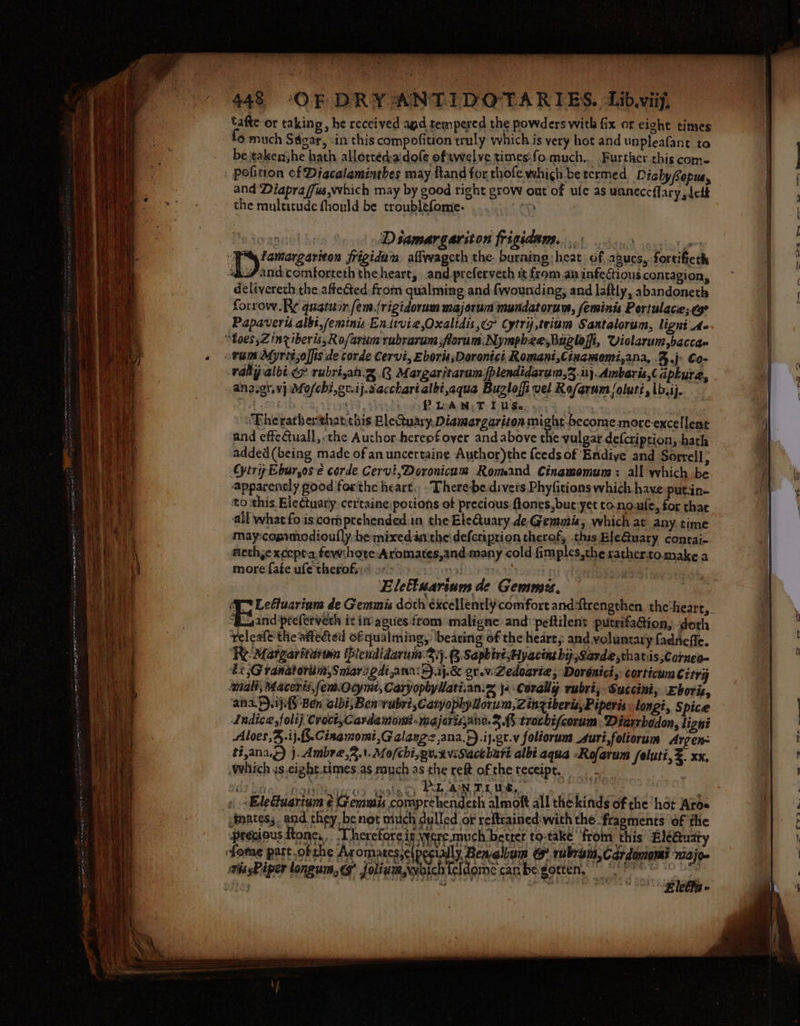 448 OF DRY ANTIDOTARIES. Lib.viij.
taste or taking, he received and tempered the powders with six or eight times
so much Sugar, in this composition truly which is very hot and unpleasant to
be taken, he hath allotted a dose of twelve times so much. Further this com-
position of Diacalaminthes may stand for those which be termed Diahyssopus,
and Diaprassus, which may by good right grow out of use as unnecessary, lest
the multitude should be troublesome.
Diamargariton frigidum.
Diamargariton frigidum asswageth the burning heat of agues, fortifieth
and comforteth the heart, and preserveth it from an infectious contagion,
delivereth the affected from qualming and swounding, and lastly, abandoneth
sorrow. ℞ quatuor sem. frigidorum majorum mundatorum, seminis Portulacæ, &
Papaveris albi, seminis Endiviæ, Oxalidis, & Cytrij, trium Santalorum, ligni A-
loes, Zinziberis, Rosarum rubrarum, florum Nymphææ, Buglossi, Violarum, bacca-
rum Myrti, ossis de corde Cervi, Eboris, Doronici Romani, Cinamomi, ana, ʒ.j. Co-
rallij albi & rubri, an. ʒ ß Margaritarum splendidarum, ʒ iij. Ambaris, Caphuræ,
ana. gr. vj. Moschi, gr. ij. Sacchari albi, aqua Buglossi vel Rosarum soluti, lb. ij.
PLANTIUS.
The rather that this Electuary Diamargariton might become more excellent
and effectuall, the Author hereof over and above the vulgar description, hath
added (being made of an uncertaine Author) the seeds of Endive and Sorrell,
Cytrij Ebur, os è corde Cervi, Doronicum Romand Cinamomum: all which be
apparently good for the heart. There be divers Physitions which have put in-
to this Electuary certaine potions of precious stones, but yet to no use, for that
all what so is comprehended in the Electuary de Gemmis, which at any time
may commodiously be mixed in the description therof, this Electuary contai-
neth, except a few hote Aromates, and many cold simples, the rather to make a
more safe use therof.
Electuarium de Gemmis.
Electuarium de Gemmis doth excellently comfort and strengthen the heart,
and preserveth it in agues from maligne and pestilent putrifaction, doth
release the affected of qualming, beating of the heart, and voluntary sadnesse.
℞ Margaritarum splendidarum ʒ ij. ß Saphiri, Hyacinthi, Sardæ, that is, Corneo-
li, Granatorum, Smaragdi, ana ℈.ij. & gr. v. Zedoariæ, Doronici, corticum Citrij
mali, Maceris, sem. Ocymi, Caryophyllati, an. ʒ j. Corallij rubri, Succini, Eboris,
ana ℈.ij.ß Ben albi, Ben rubri, Caryophyllorum, Zinziberis, Piperis longi, Spicæ
Indicæ, folij Croci, Cardamomi majoris, ana. ʒ.ß trochiscorum Diarrhodon, ligni
Aloes, ʒ.ij.ß. Cinamomi, Galangæ, ana, ℈.ij. gr. v foliorum Auri, foliorum Argen-
ti, ana, ℈ j. Ambræ, ʒ.i. Moschi, gr. xv. Sacchari albi aqua Rosarum soluti, ℥. xx.
which is eight times as much as the rest of the receipt.
PLANTIUS.
Electuarium è Gemmis comprehendeth almost all the kinds of the hot Aro-
mates, and they be not much dulled or restrained with the fragments of the
precious stone. Therefore it were much better to take from this Electuary
some part of the Aromates, especially Ben album & rubrum, Cardomomi majo-
ris, Piper longum, & folium, which seldome can be gotten.
Electu-